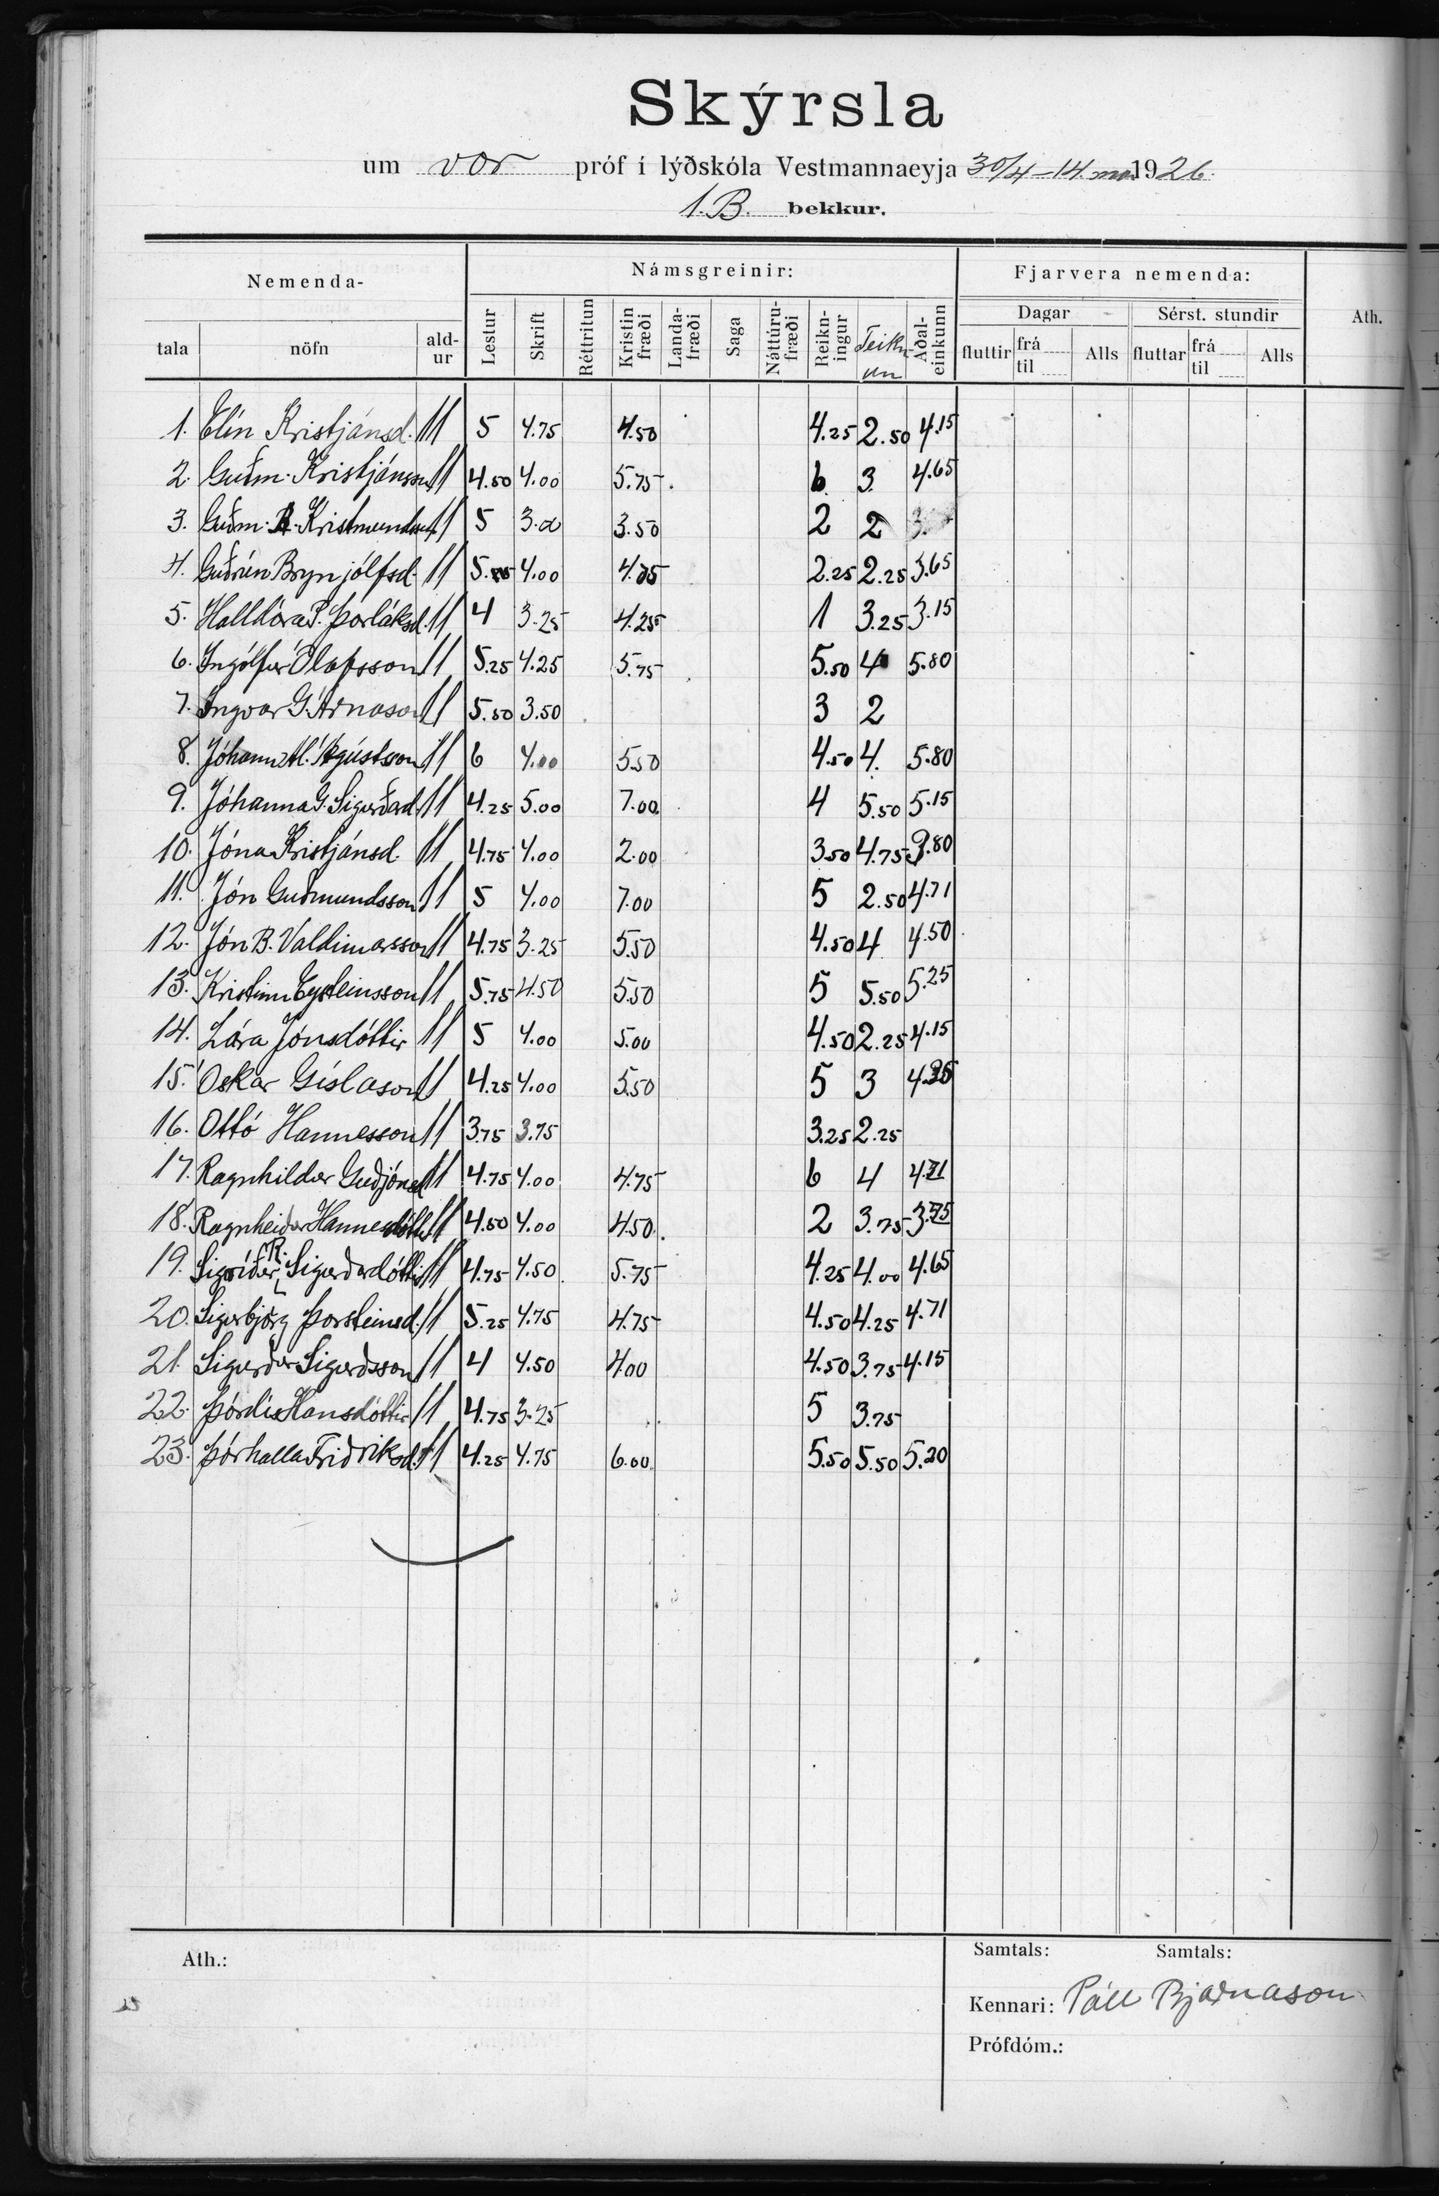 Skýrsla
um vor próf í lýðskóla Vestmannaeyja 30/4-14. maí 1926.
1. B. bekkur.
Nemenda- Námsgreinir: Fjarvera nemenda: Ath.
Dagar Sérst. stundir
tala nöfn ald-ur Lestur Skrift Réttritun Kristin fræði Landa-fræði Saga Náttúru-fræði Reikn-ingur Teikn un Aðal-einkunn fluttir frá til Alls fluttar frá til Alls
1. Elín Kristjánsd. 11 5 4.75 4.50 4.25 2.50 4.15
2. Guðm. Kristjánsson 11 4.50 4.00 5.75 6 3 4.65
3. Guðm. Kristmundss. 11 5 3.50 2 2 3.
4. Guðrún Brynjólfsd. 11 4.00 2.25 2.25 3.65
5. Halldóra P. Þorláksd. 11 4 3.25 4.25 1 3.25 3.15
6. Ingólfur Ólafsson 11 5.25 4.25 5.75 5.50 4 5.80
7. Ingvar G. Árnason 11 5.50 3.50 3 2
8. Jóhann Ágústsson 11 6 4.00 5.50 4.50 4. 5.80
9. Jóhanna G. Sigurðard. 11 4.25 5.00 7.00 4 5.50 5.15
10. Jóna Kristjánsd. 11 4.75 4.00 2.00 3.50 4.75 3.80
11. Jón Guðmundsson 11 5 4.00 7.00 5 2.50 4.71
12. Jón B. Valdimarsson 11 4.75 3.25 5.50 4.50 4 4.50
13. Kristinn Eysteinsson 11 5.75 4.50 5.50 5 5.50 5.25
14. Lára Jónsdóttir 11 5 4.00 5.00 4.50 2.25 4.15
15. Óskar Gíslason 11 4.25 4.00 5.50 5 3
16. Ottó Hannesson 11 3.75 3.75 3.25 2.25
17. Ragnhildur Guðjónsd 11 4.75 4.00 4.75 6 4 4.71
18. Ragnheiður Hannesdóttir 11 4.50 4.00 4.50 2 3.75 3.75
19. Sigríður R. Sigurðardóttir 11 4.75 4.50 5.75 4.25 4.00 4.65
20. Sigurbjörg Þorsteinsd. 11 5.25 4.75 4.75 4.50 4.25 4.71
21. Sigurður Sigurðsson 11 4 4.50 4.00 4.50 3.75 4.15
22. Þórdís Hansdóttir 11 4.75 3.25 5 3.75
23. Þórhalla Friðriksd. 11 4.25 4.75 6.00 5.50 5.50 5.20
Ath.: Samtals: Samtals:
Kennari: Páll Bjarnason
Prófdóm.: